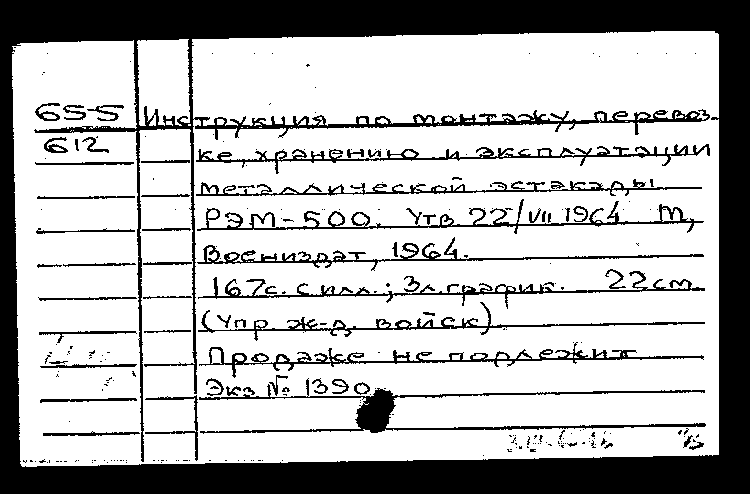 65-5
612
Инструкция по монтажу, перевоз-
ке, хранению и эксплуатации
металлической эстакады
РЭМ-500. Утв. 22/VII 1964 М,
Воениздат, 1964.
167с. с илл.; 3л. график. 22см
(Упр. ж-д. войск).
Продаже не подлежит
Экз № 1390